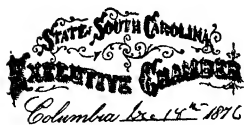 STATE of SOUTH CAROLINA
EXECUTIVE CHAMBER
Columbia Dec 14th 1876